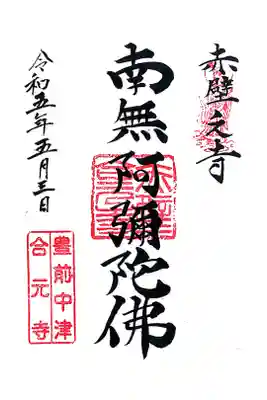 赤壁之寺
南無阿彌陀佛
令和五年五月三日
豊前中津
合元寺